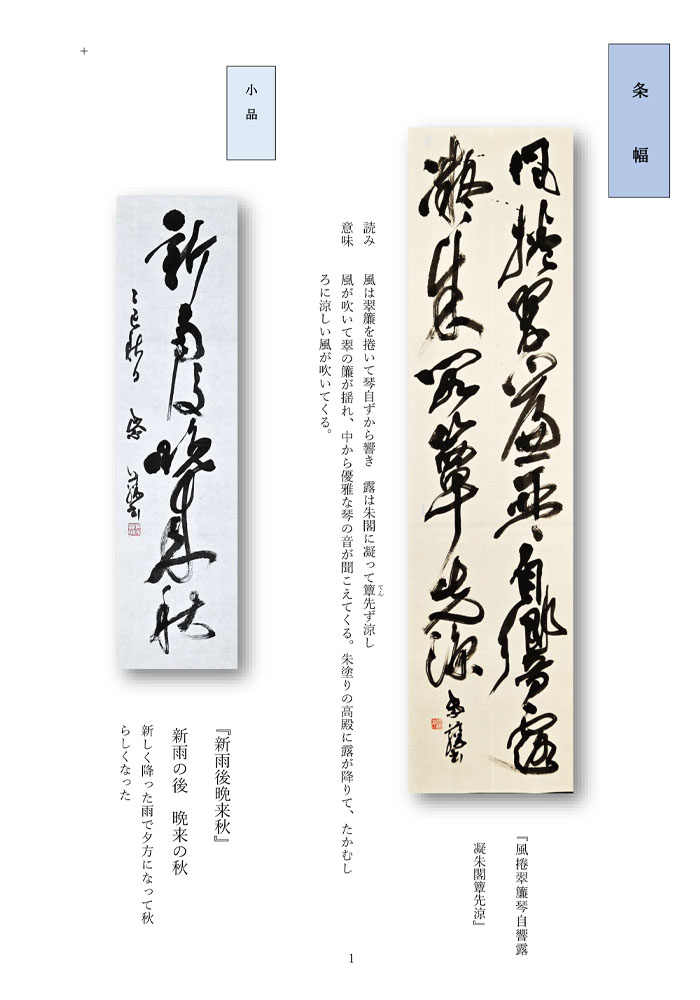 条幅
風捲翠簾琴自響露
凝朱閣簟先涼
『風捲翠簾琴自響露
凝朱閣簟先涼』
読み　風は翠簾を捲いて琴自ずから響き　露は朱閣に凝って簟先ず涼し
てん
意味　風が吹いて翠の簾が揺れ、中から優雅な琴の音が聞こえてくる。朱塗りの高殿に露が降りて、たかむし
ろに涼しい風が吹いてくる。
小品
新雨後晩来秋
『新雨後晩来秋』
新雨の後　晩来の秋
新しく降った雨で夕方になって秋
らしくなった
1